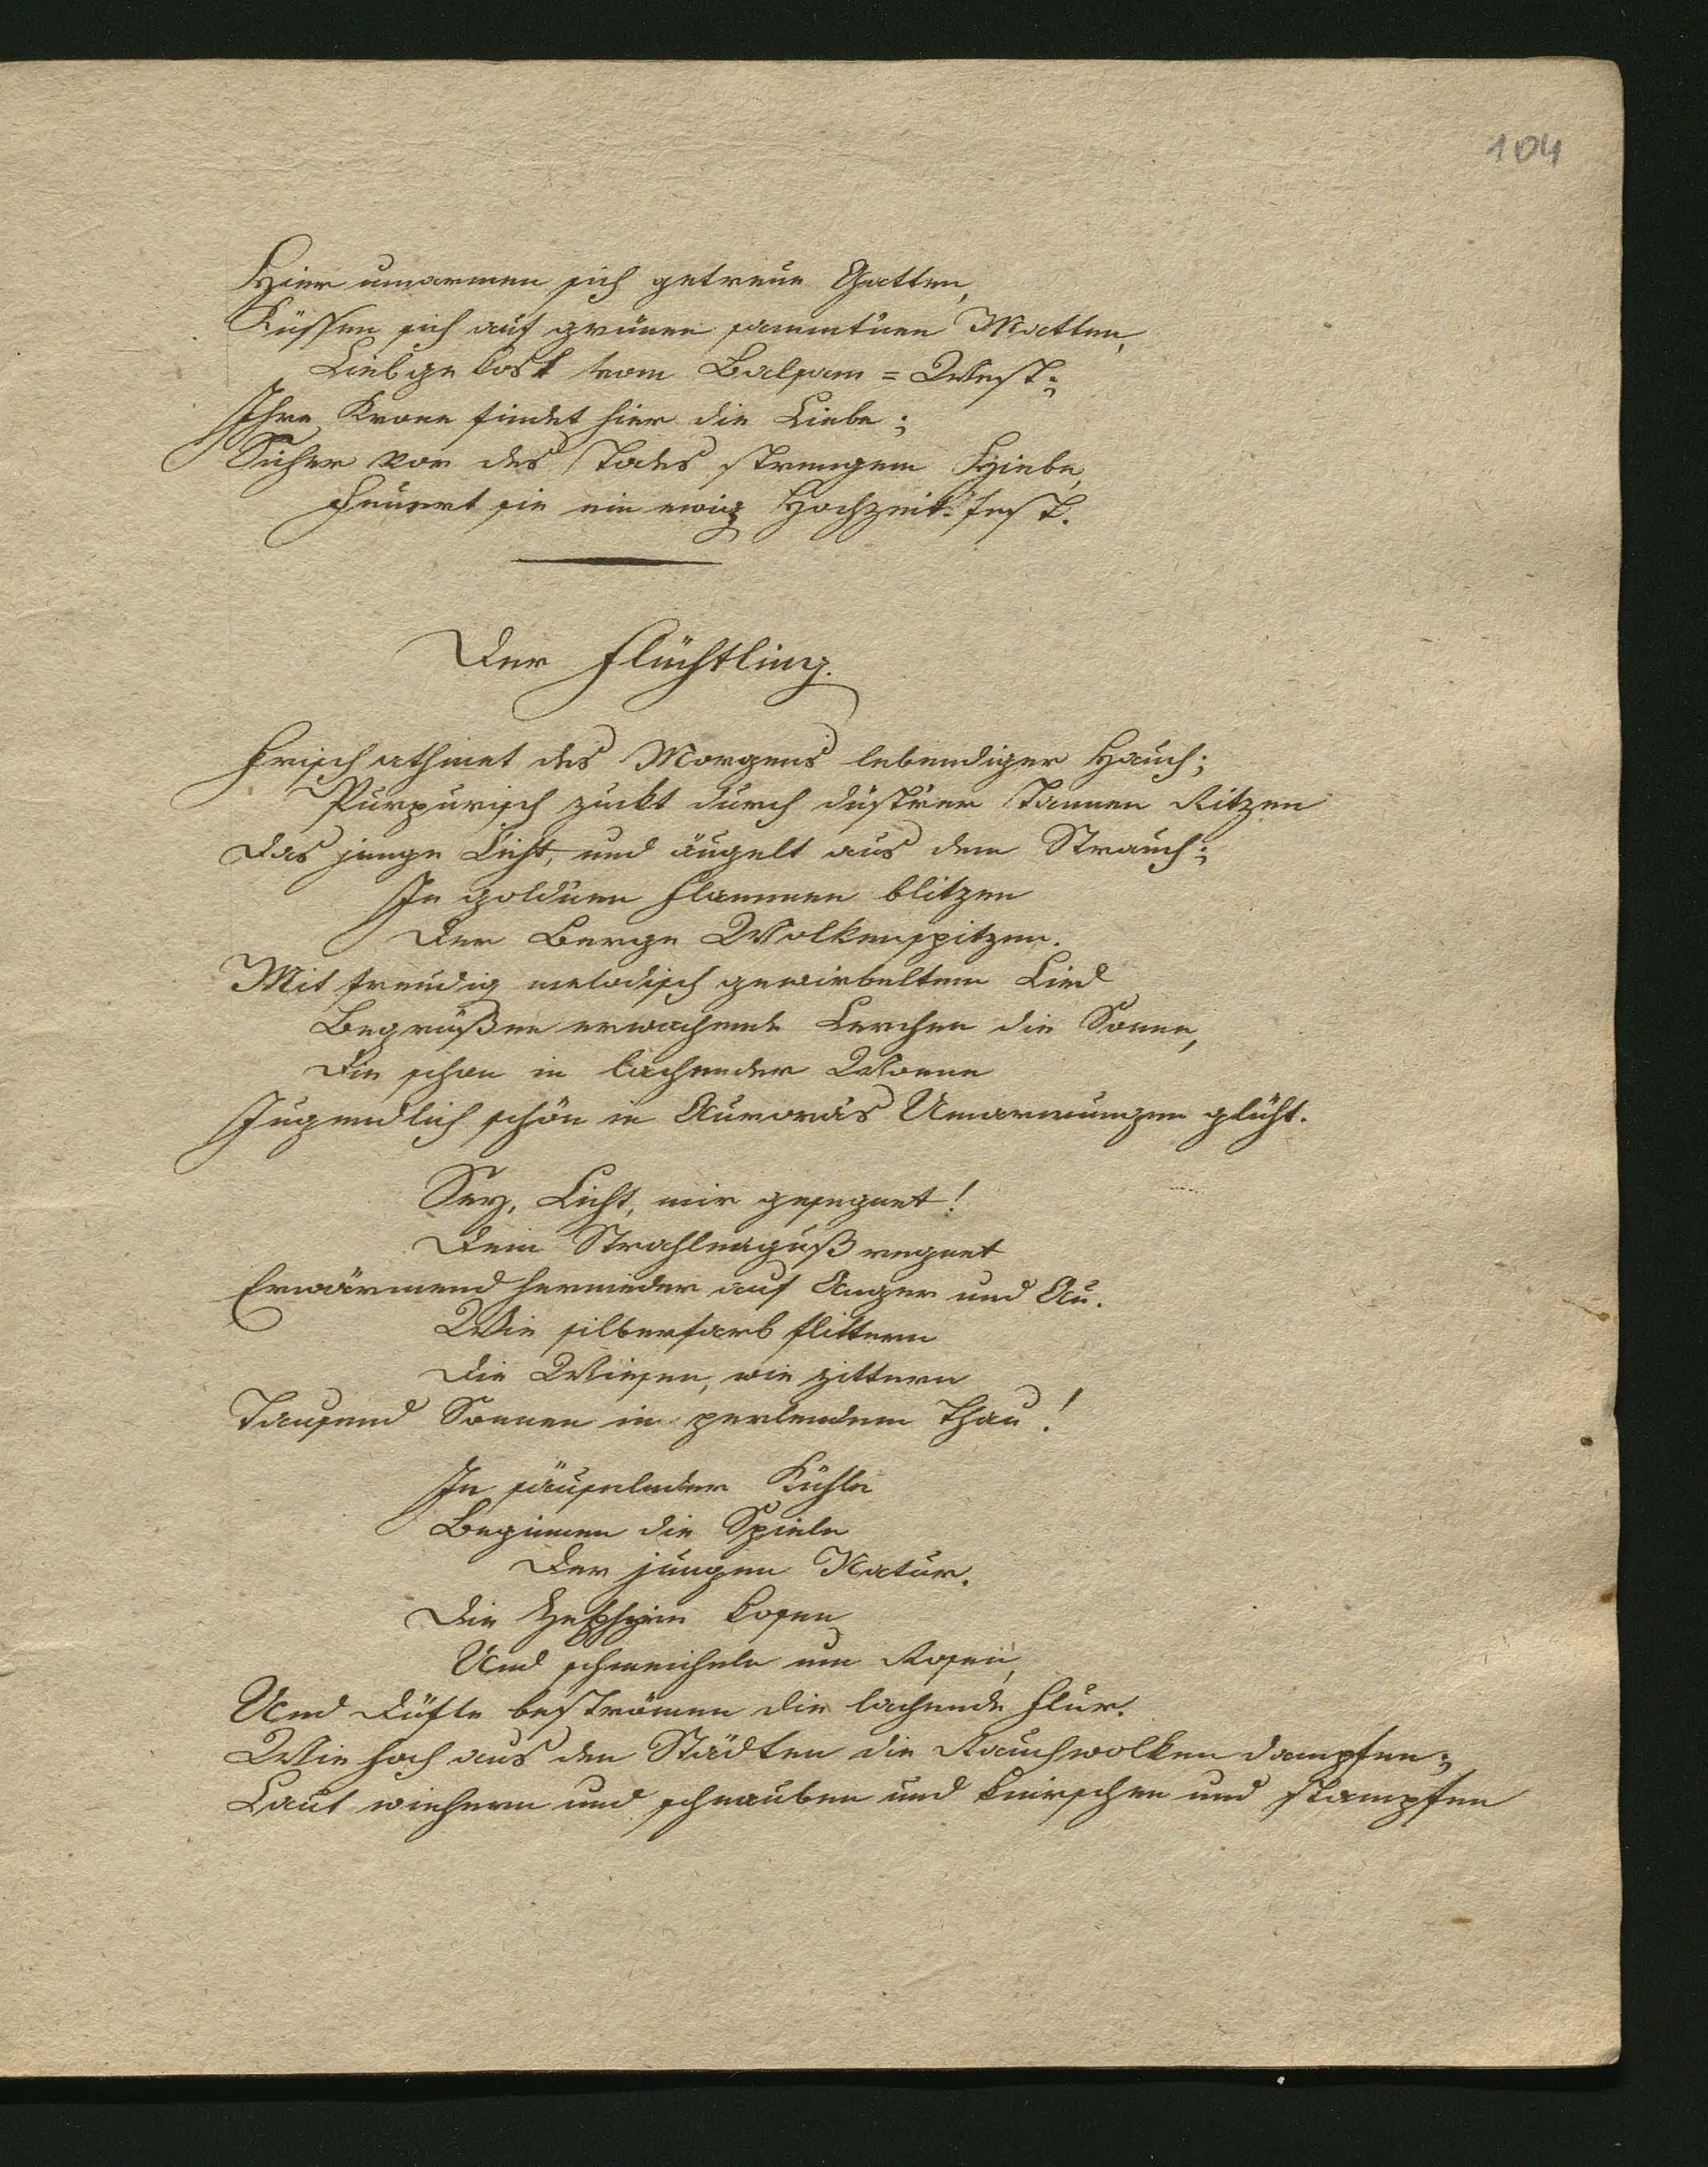 104
Hier umarmen sich getreue Gatten,
Küssen sich auf grünen sammtnen Matten,
Liebgekost vom Balsam=West;
Ihre Krone findet hier die Liebe;
Sicher vor des Todes strengem Hiebe,
Feuert sie ein ewig Hochzeit-fest.
Der Flüchtling.
Frisch athmet des Morgens lebendiger Hauch;
Purpurisch zuckt durch düstrer Tannen Ritzen
Das junge Licht, und äugelt aus dem Strauch;
In goldnen Flammen blitzen
Der Berge Wolkenspitzen.
Mit freudig melodisch gewirbeltem Lied
Begrüßen erwachende Lerchen die Sonne,
Die schon in lachender Wonne
Jugendlich schön in Auroras Umarmungen glüht.
Sey, Licht, mir gesegnet!
Dein Strahlenguß regnet
Erwärmend hernieder auf Anger und Au.
Wie silberfarb flittern
Die Wiesen, wie zittern
Tausend Sonnen in perlendem Thau!
In säuselnder Kühle
Beginnen die Spiele
Der jungen Natur.
Die Zephyre kosen
Und schmeicheln um Rosen,
Und Düfte beströmen die lachende Flur.
Wie hoch aus den Städten die Rauchwolken dampfen;
Laut wiehern und schnauben und knirschen und stampfen